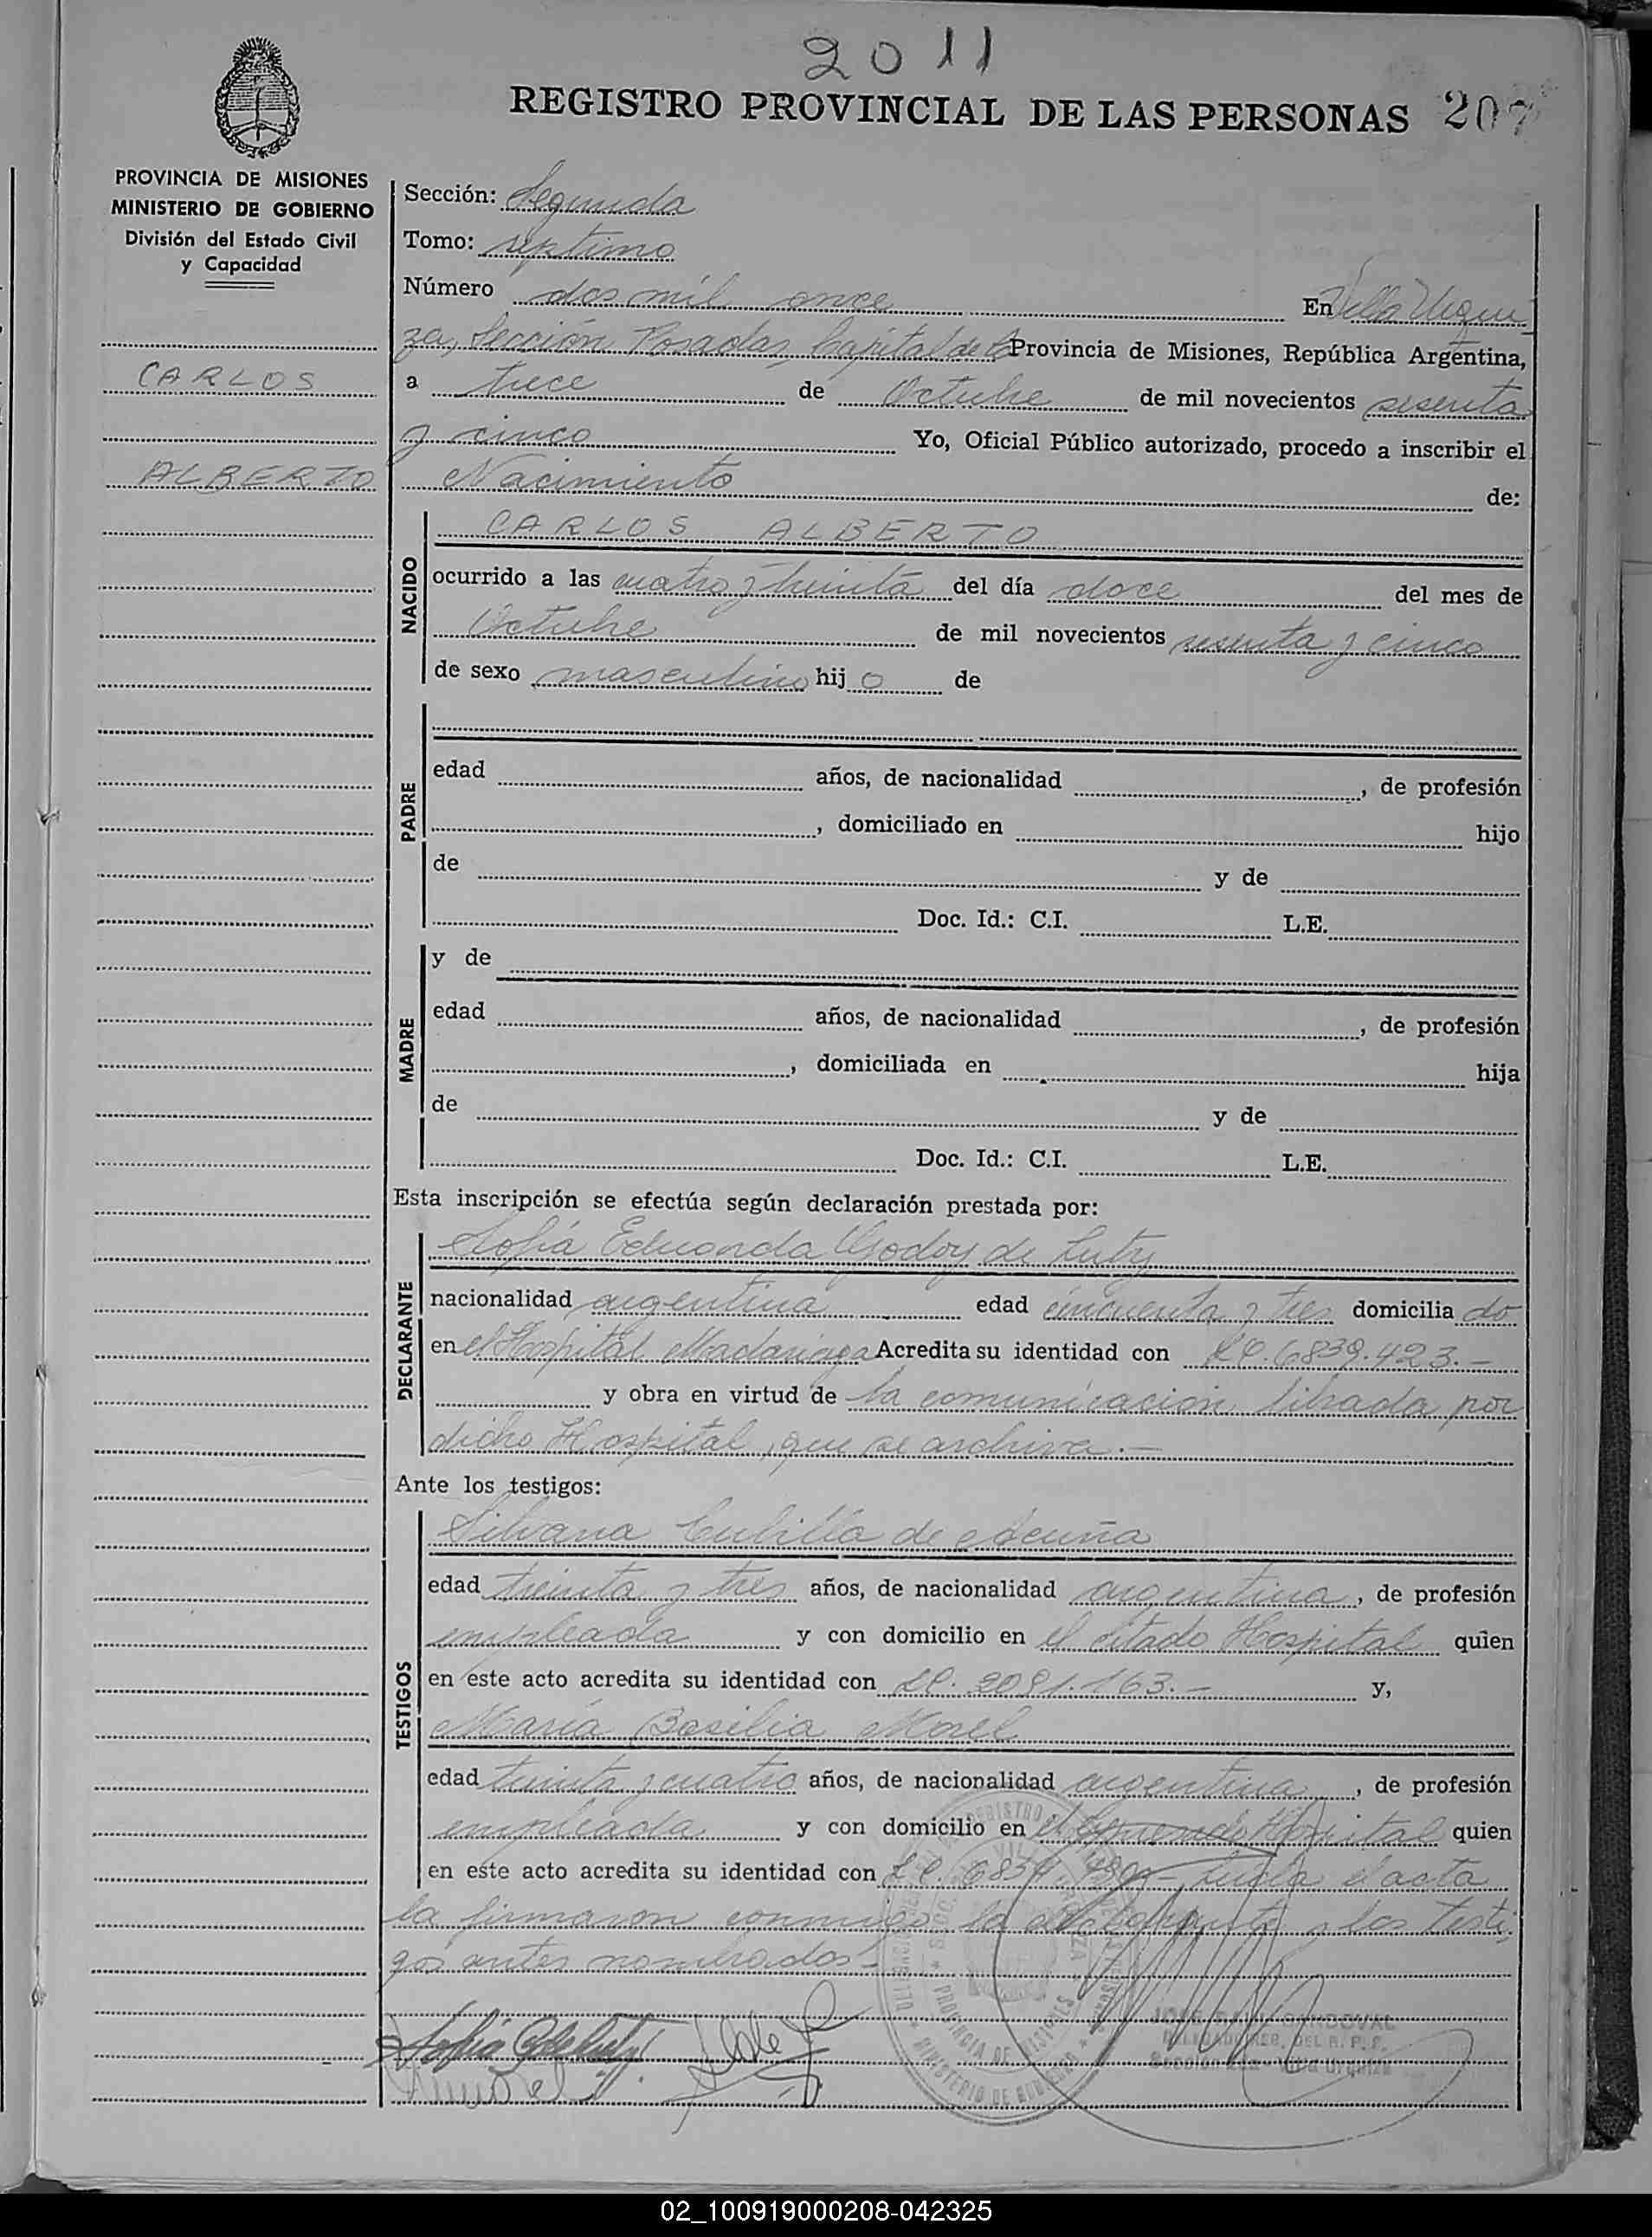 2011
REGISTRO PROVINCIAL DE LAS PERSONAS 207
PROVINCIA DE MISIONES
MINISTERIO DE GOBIERNO
División del Estado Civil
y Capacidad
CARLOS
ALBERTO
Sección: Segunda
Tomo: septimo
Número dos mil once En Villa Urqui-
za, Sección Posadas, Capital de la Provincia de Misiones, República Argentina,
a trece de Octubre de mil novecientos sesenta
y cinco Yo, Oficial Público autorizado, procedo a inscribir el
Nacimiento de:
NACIDO
CARLOS ALBERTO
ocurrido a las cuatro y treinta del día doce del mes de
Octubre de mil novecientos sesenta y cinco
de sexo masculino hijo de
PADRE
edad años, de nacionalidad , de profesión
, domiciliado en hijo
de y de
Doc. Id.: C.I. L.E.
MADRE
y de
edad años, de nacionalidad , de profesión
, domiciliada en hija
de y de
Doc. Id.: C.I. L.E.
Esta inscripción se efectúa según declaración prestada por:
DECLARANTE
Sofía Eduarda Godoy de Luty
nacionalidad argentina edad cincuenta y tres domiciliado
en el Hospital Madariaga Acredita su identidad con LC. 6839.423.-
y obra en virtud de la comunicación librada por
dicho Hospital, que se archiva.-
Ante los testigos:
TESTIGOS
Silvana Cubilla de Acuña
edad treinta y tres años, de nacionalidad argentina, de profesión
empleada y con domicilio en el citado Hospital quien
en este acto acredita su identidad con LC. 2091.163.- y,
María Basilia Morel
edad treinta y cuatro años, de nacionalidad argentina, de profesión
empleada y con domicilio en el Hospital quien
en este acto acredita su identidad con LC. Leída el acta
la firmaron conmigo la declarante y los testi-
gos antes nombrados.-
JOSE RAUL SANDOVAL
DEL R. P. P.
Villa Urquiza
PROVINCIA DE MISIONES
MINISTERIO DE GOBIERNO
02_100919000208-042325